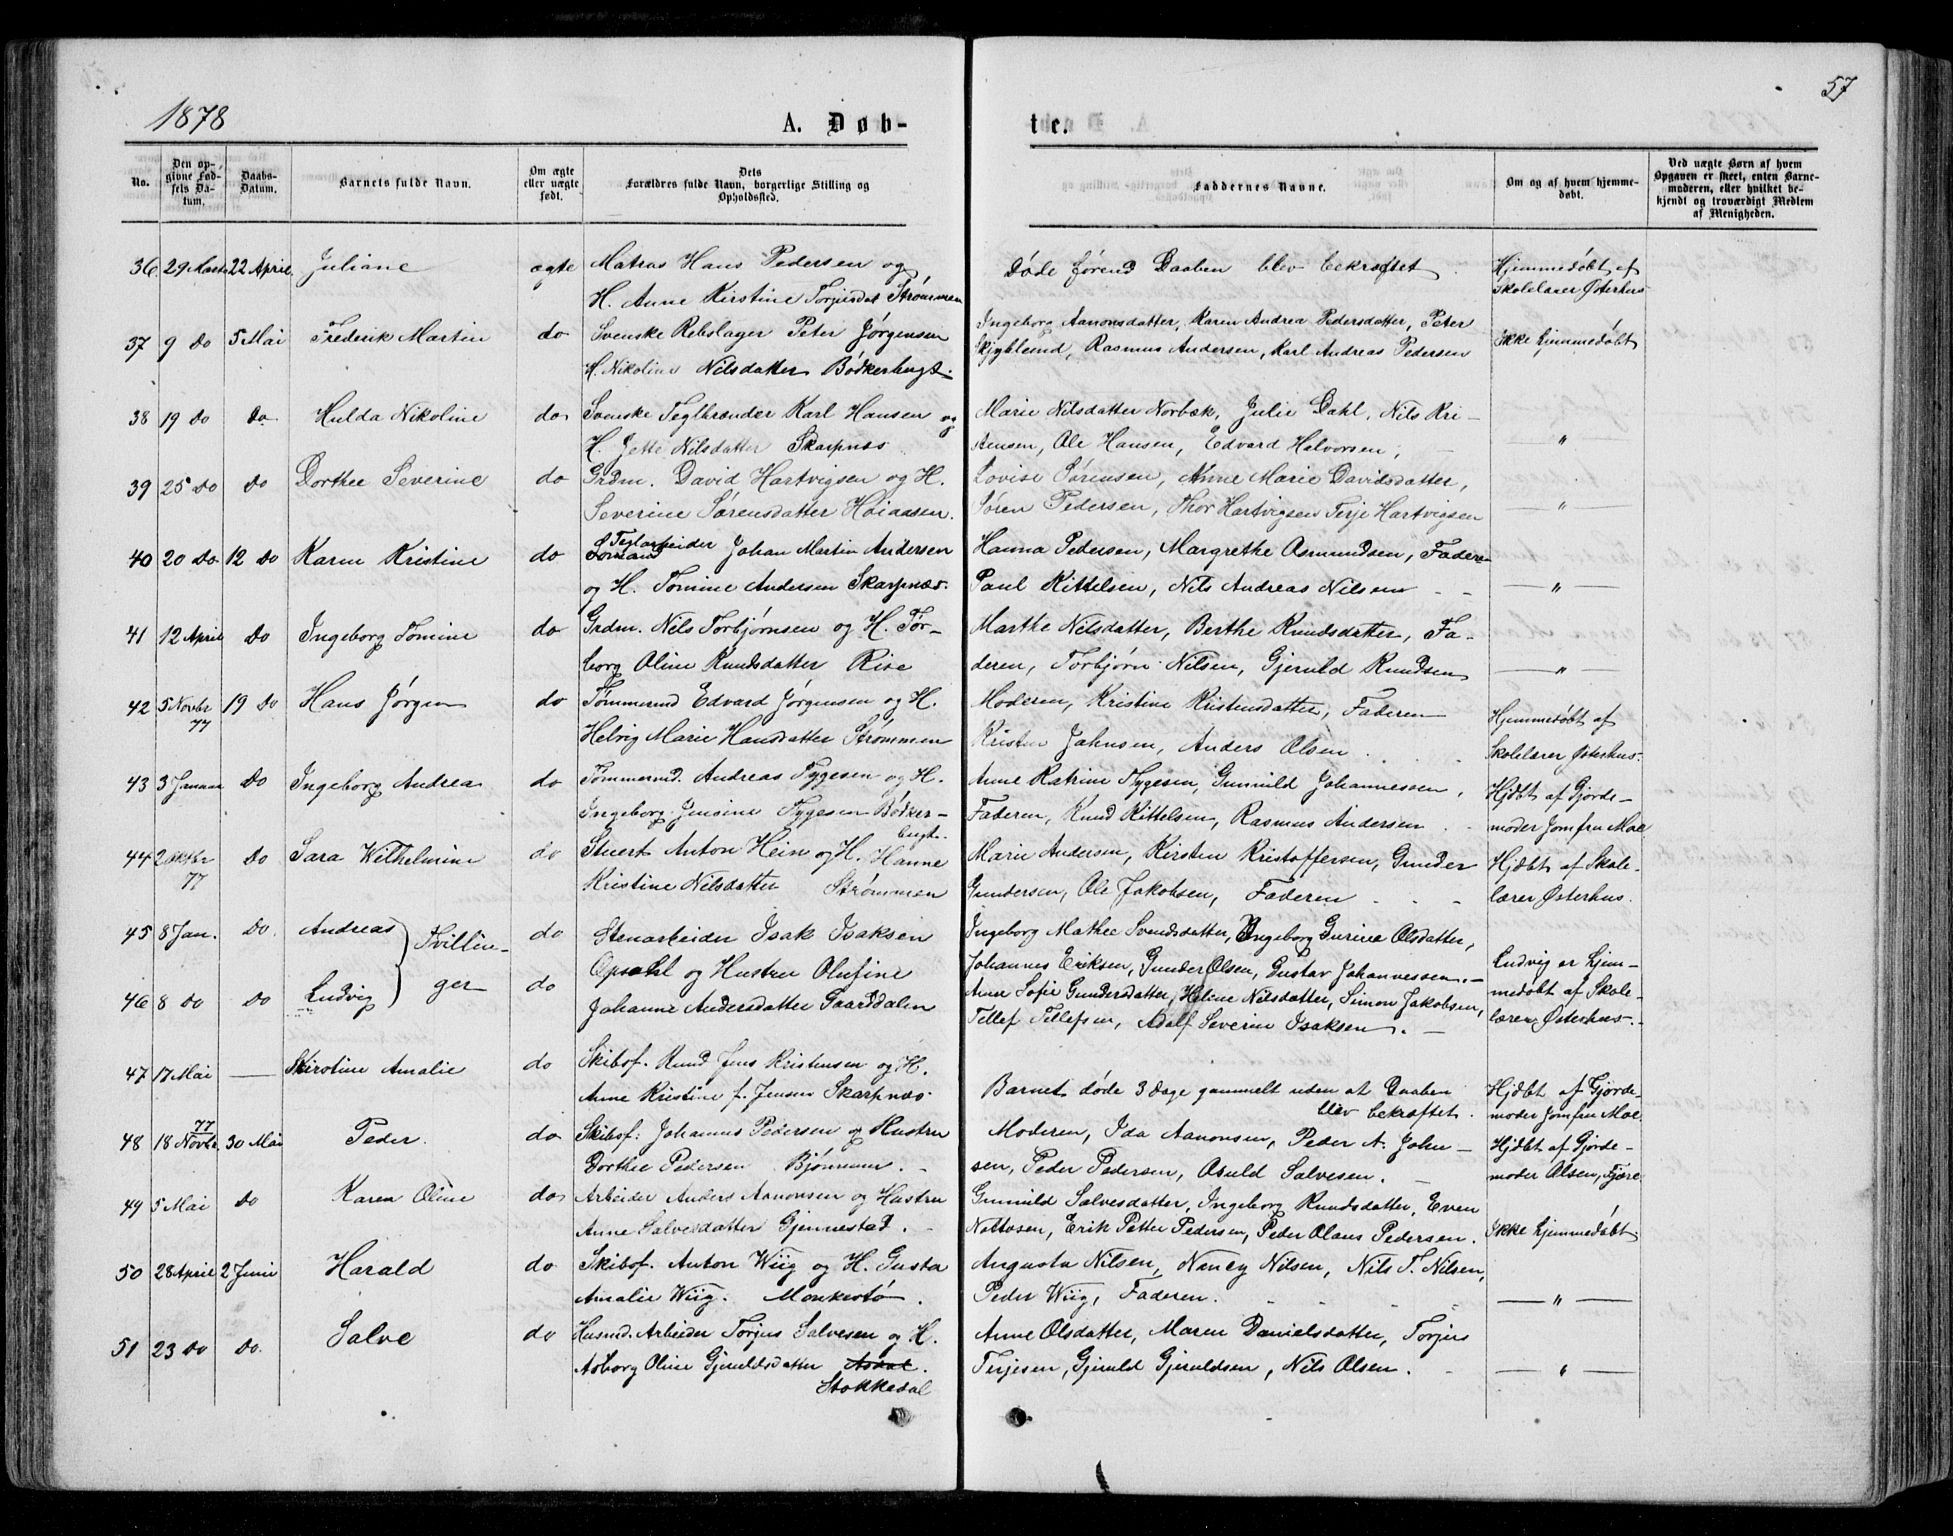 1878
57
A. Døb-
te.
No.
Den opgivne Fødsels Datum.
Daabs-Datum.
Barnets fulde Navn.
Om ægte eller uægte født.
Dets Forældres fulde Navn, borgerlige Stilling og Opholdssted.
Faddernes Navne.
Om og af hvem hjemmedøbt.
Ved uægte Børn af hvem Opgaven er skeet, enten Barnemoderen, eller hvilket bekjendt og troværdigt Medlem af Menigheden.
36 29 Marts 22 April Juliane ægte Matros Hans Pedersen og
H. Anne Kirstine Torjusdat Strømmen
Døde førend Daaben blev bekræftet
Hjemmedøbt af
Skolelærer Østerhus
37 9 do 5 Mai Frederik Martin do Svenske Rebslager Peter Jørgensen
H. Nikoline Nilsdatter Bødkerbugt.
Ingeborg Aanonsdatter, Karen Andrea Pedersdatter, Peter
Skjyblund, Rasmus Andersen, Karl Andreas Pedersen
Ikke hjemmedøbt
38 19 do do Hulda Nikoline do Svenske Teglbrænder Karl Hansen og
H. Jette Nilsdatter Skarpnæs
Marie Nilsdatter Norbæk, Julie Dahl, Nils Kri-
stensen, Ole Hansen, Edvard Halvorsen,
— " —
39 25 do do Dorthee Severine do Grdm. David Hartvigsen og H.
Severine Sørensdatter Høiaasen.
Lovise Sørensen, Anne Marie Davidsdatter,
Søren Pedersen, Thor Hartvigsen Terje Hartvigsen
— " —
40 20 do 12 do Karen Kristine do Teglarbeider Johan Martin Andersen
og H. Tomine Andersen Skarpnæs.
Hanna Pedersen, Margrethe Asmundsen, Faderen
Paul Kittelsen, Nils Andreas Nilsen
— " —
41 12 April do Ingeborg Tomine do Grdm. Nils Torbjørnsen og H. Tor-
borg Oline Knudsdatter Rise
Marthe Nilsdatter, Berthe Knudsdatter, Fa-
deren, Torbjørn Nilsen, Gjeruld Knudsen
— " —
42 5 Novbr 77 19 do Hans Jørgen do Tømmermd Edvard Jørgensen og H.
Helvig Marie Hansdatter Strømmen
Moderen, Kristine Kristensdatter, Faderen
Kristen Johnsen, Anders Olsen
Hjemmedøbt af
Skolelærer Østerhus.
43 3 Januar do Ingeborg Andrea do Tømmermd. Andreas Tygesen og H.
Ingeborg Jensine Tygesen Bødker-
bugt.
Anne Katrine Tygesen, Gunnild Johannessen,
Faderen, Knud Kittelsen, Rasmus Andersen
Hjdbt af Gjorde-
moder Jomfru Moe
44 2 Oktbr 77 do Sara Wilhelmine do Stuert Anton Hein og H. Hanne
Kristine Nilsdatter Strømmen
Marie Andersen, Kirsten Kristoffersen, Gunder
Gundersen, Ole Jakobsen, Faderen
Hjdbt af Skole-
lærer Østerhus.
45 8 Jan. do. Andreas } Tvillin- do Stenarbeider Isak Isaksen
Opsahl og Hustru Olufine
46 8 do do Ludvig } ger do Johanne Andersdatter Gaarddalen
Ingeborg Mathee Svendsdatter, Ingeborg Gurine Olsdatter,
Johannes Eriksen, Gunder Olsen, Gustav Johannessen.-
Anne Sofie Gundersdatter, Heline Nilsdatter, Simon Jakobsen,
Tellef Tellefsen, Adolf Severin Isaksen.
Ludvig er hjem-
medøbt af Skole-
lærer Østerhus.
47 17 Mai — Kirstine Amalie do Skibsf. Knud Jens Kristensen og H.
Anne Kristine f. Jensen Skarpnæs.
Barnet døde 3 dage gammelt uden at Daaben
blev bekræftet.
Hjdbt af Gjorde-
moder Jomfru Moe.
48 18 Novbr. 77 30 Mai Peder. do Skibsf: Johannes Pedersen og Hustru
Dorthie Pedersen Bjønnum.
Moderen, Ida Aanonsen, Peder A. John-
sen, Peder Pedersen, Osuld Salvesen.
Hjdbt af Gjorde-
moder Olsen, Fjære
49 5 Mai do Karen Oline do Arbeider Anders Aanonsen og Hustru
Anne Salvesdatter Gjennestad.
Gunnild Salvesdatter, Ingeborg Knudsdatter, Even
Nottosen, Erik Petter Pedersen, Peder Olaus Pedersen.
Ikke hjemmedøbt
50 28 April 2 Juni Harald do Skibsf. Anton Wiig og H. Gusta
Amalie Wiig. Monkestø.
Augusta Nilsen, Nancy Nilsen, Nils T. Nilsen,
Peder Wiig, Faderen.
— " —
51 23 do do. Salve do Husmd. Arbeider Torjus Salvesen og H.
Asborg Oline Gjeruldsdatter Asdal.
Stokkedal
Anne Olsdatter, Maren Danielsdatter, Torjus
Terjesen, Gjeruld Gjeruldsen, Nils Olsen.
— " —